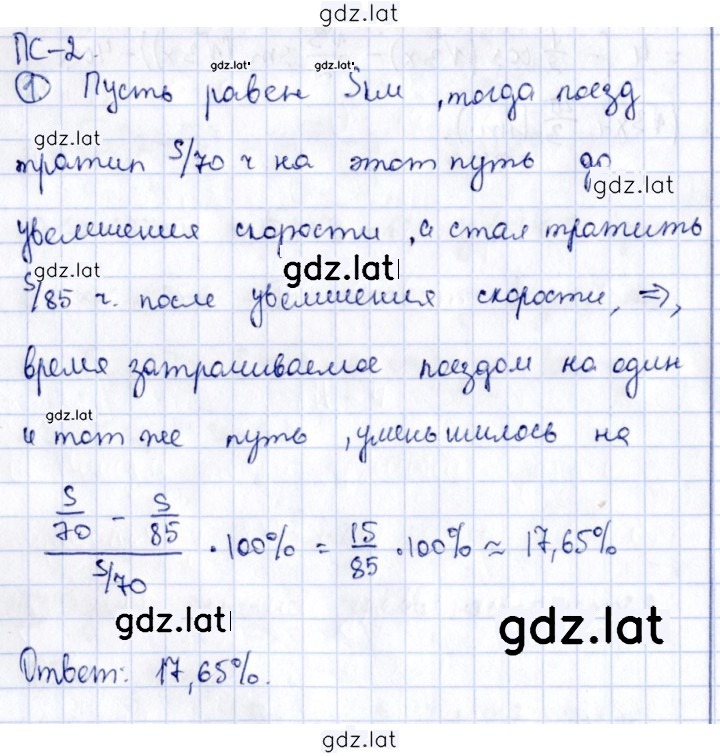 gdz.lat
ПС-2.
gdz.lat gdz.lat
① Пусть равен Sкм, тогда поезд
gdz.lat
тратил S/70 ч на этот путь до
gdz.lat
увелишения скорости, а стал тратить
gdz.lat
S/85 ч. после увелишения скорости, ⇒,
время затрашиваемое поездом на один
gdz.lat
и тот же путь, уменьшилось на
(S/70 - S/85)/(S/70) · 100% = 15/85 · 100% ≈ 17,65%
gdz.lat gdz.lat
Ответ: 17,65%.
gdz.lat